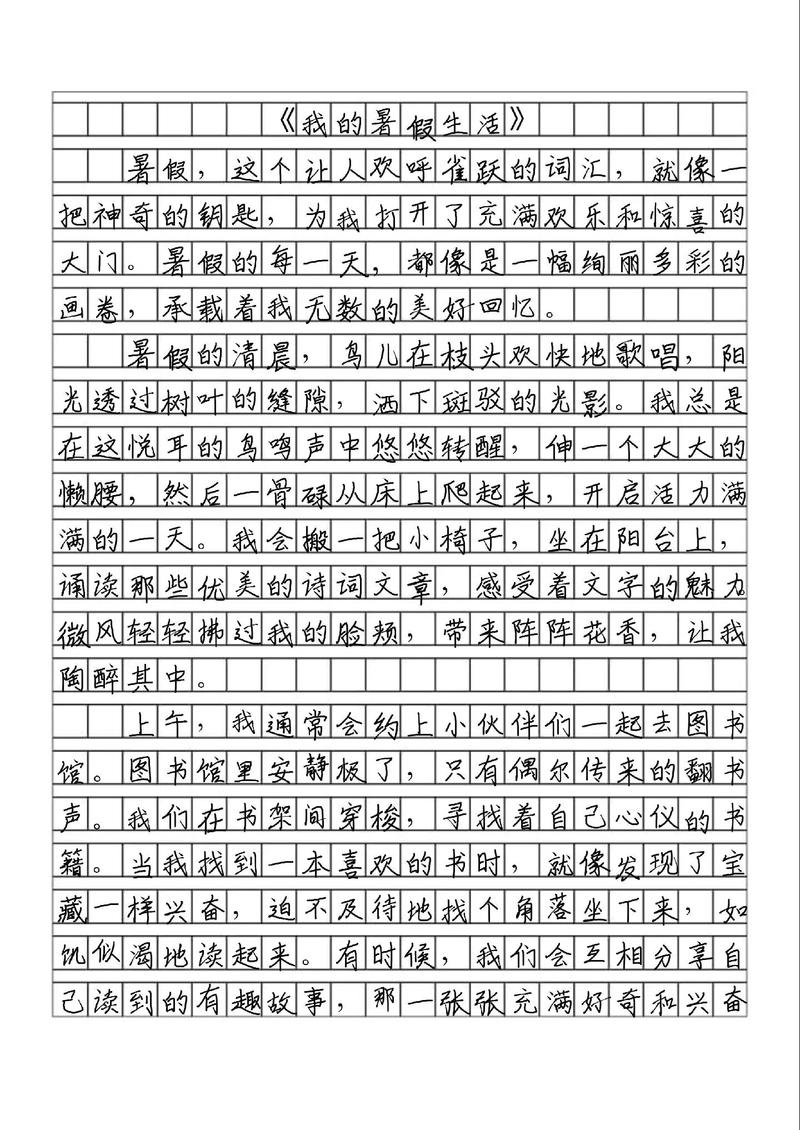 《我的暑假生活》
暑假，这个让人欢呼雀跃的词汇，就像一
把神奇的钥匙，为我打开了充满欢乐和惊喜的
大门。暑假的每一天，都像是一幅绚丽多彩的
画卷，承载着我无数的美好回忆。
暑假的清晨，鸟儿在枝头欢快地歌唱，阳
光透过树叶的缝隙，洒下斑驳的光影。我总是
在这悦耳的鸟鸣声中悠悠转醒，伸一个大大的
懒腰，然后一骨碌从床上爬起来，开启活力满
满的一天。我会搬一把小椅子，坐在阳台上，
诵读那些优美的诗词文章，感受着文字的魅力
微风轻轻拂过我的脸颊，带来阵阵花香，让我
陶醉其中。
上午，我通常会约上小伙伴们一起去图书
馆。图书馆里安静极了，只有偶尔传来的翻书
声。我们在书架间穿梭，寻找着自己心仪的书
籍。当我找到一本喜欢的书时，就像发现了宝
藏一样兴奋，迫不及待地找个角落坐下来，如
饥似渴地读起来。有时候，我们会互相分享自
己读到的有趣故事，那一张张充满好奇和兴奋